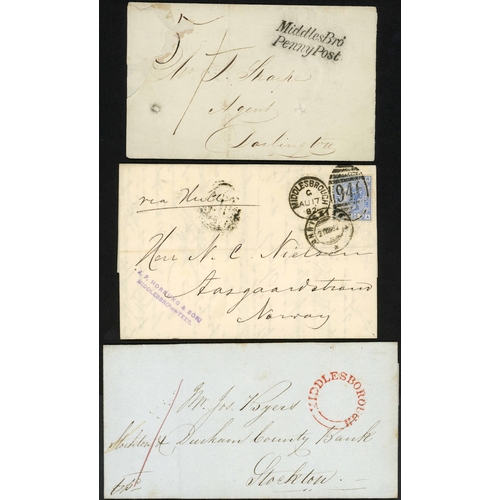 MiddlesBro
Penny Post
5
Mr. T.
Agent
Darlington
via Hull
MIDDLESBROUGH
G
AU 17
82
946
Herr N. C. Nielsen
Aasgaardstrand
Norway
& SONS
MIDDLESBRO-ON-TEES.
MIDDLESBOROUGH
Mr. Jos. Byers
Stockton & Durham County Bank
Stockton